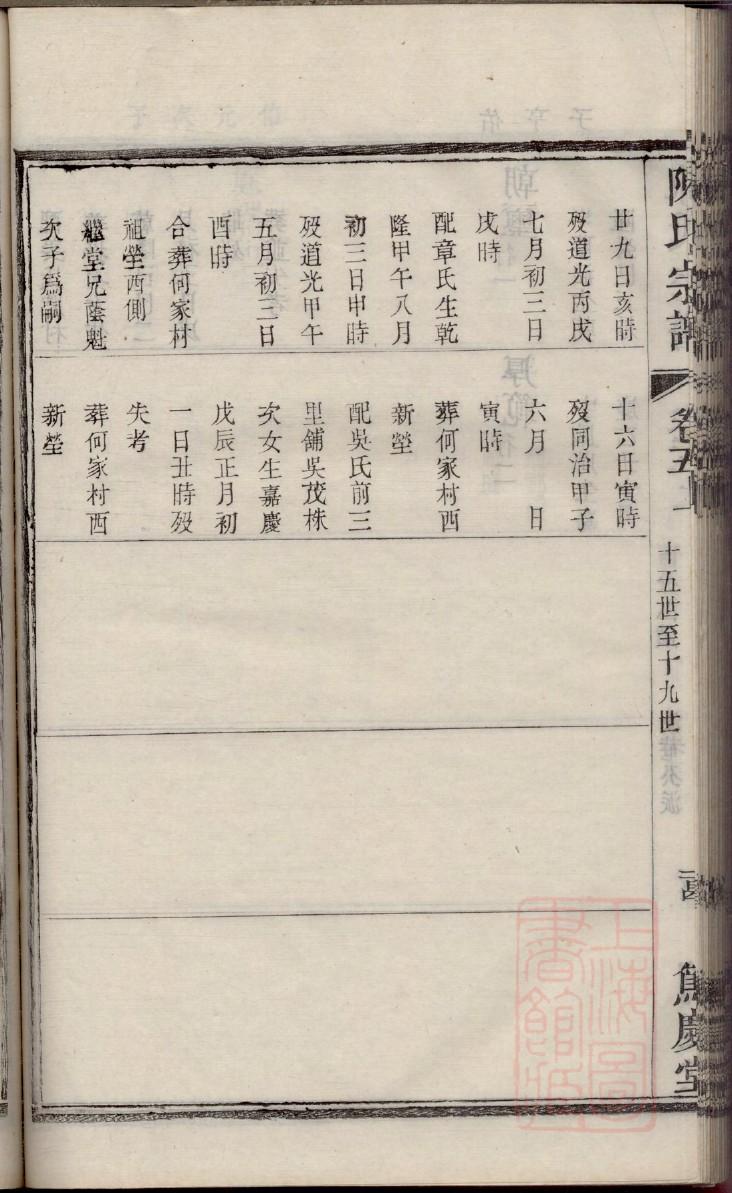 陳氏宗譜
卷五上
十五世至十九世
慶堂
廿九日亥時
歿道光丙戌
七月初三日
戌時
配章氏生乾
隆甲午八月
初三日申時
歿道光甲午
五月初三日
酉時
合葬何家村
祖塋西側
繼堂兄蔭魁
次子爲嗣
十六日寅時
歿同治甲子
六月　日
寅時
葬何家村西
新塋
配吳氏前三
里舖吳茂株
次女生嘉慶
戊辰正月初
一日丑時歿
失考
葬何家村西
新塋
上海圖
書館藏